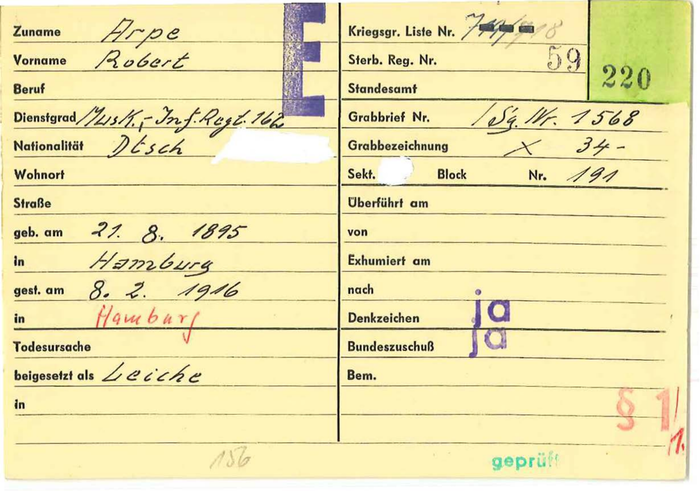 Zuname Arpe
Vorname Robert
Beruf
Dienstgrad Musk.,-Inf.Regt.162
Nationalität Dtsch
Wohnort
Straße
geb. am 21. 8. 1895
in Hamburg
gest. am 8. 2. 1916
in Hamburg
Todesursache
beigesetzt als Leiche
in
156
E
Kriegsgr. Liste Nr.
Sterb. Reg. Nr. 59
220
Standesamt
Grabbrief Nr. Sg. Nr. 1568
Grabbezeichnung X 34-
Sekt. Block Nr. 191
Überführt am
von
Exhumiert am
nach
Denkzeichen ja
Bundeszuschuß ja
Bem.
§ 1
geprüft